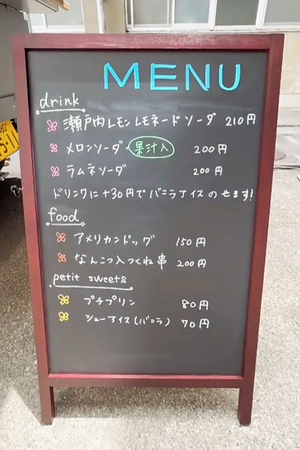 MENU
drink
瀬戸内レモンレモネードソーダ 210円
メロンソーダ 果汁入 200円
ラムネソーダ 200円
ドリンクに+30円でバニラアイスのせます!
food
アメリカンドッグ 150円
なんこつ入つくね串 200円
petit sweets
プチプリン 80円
シューアイス(バニラ) 70円